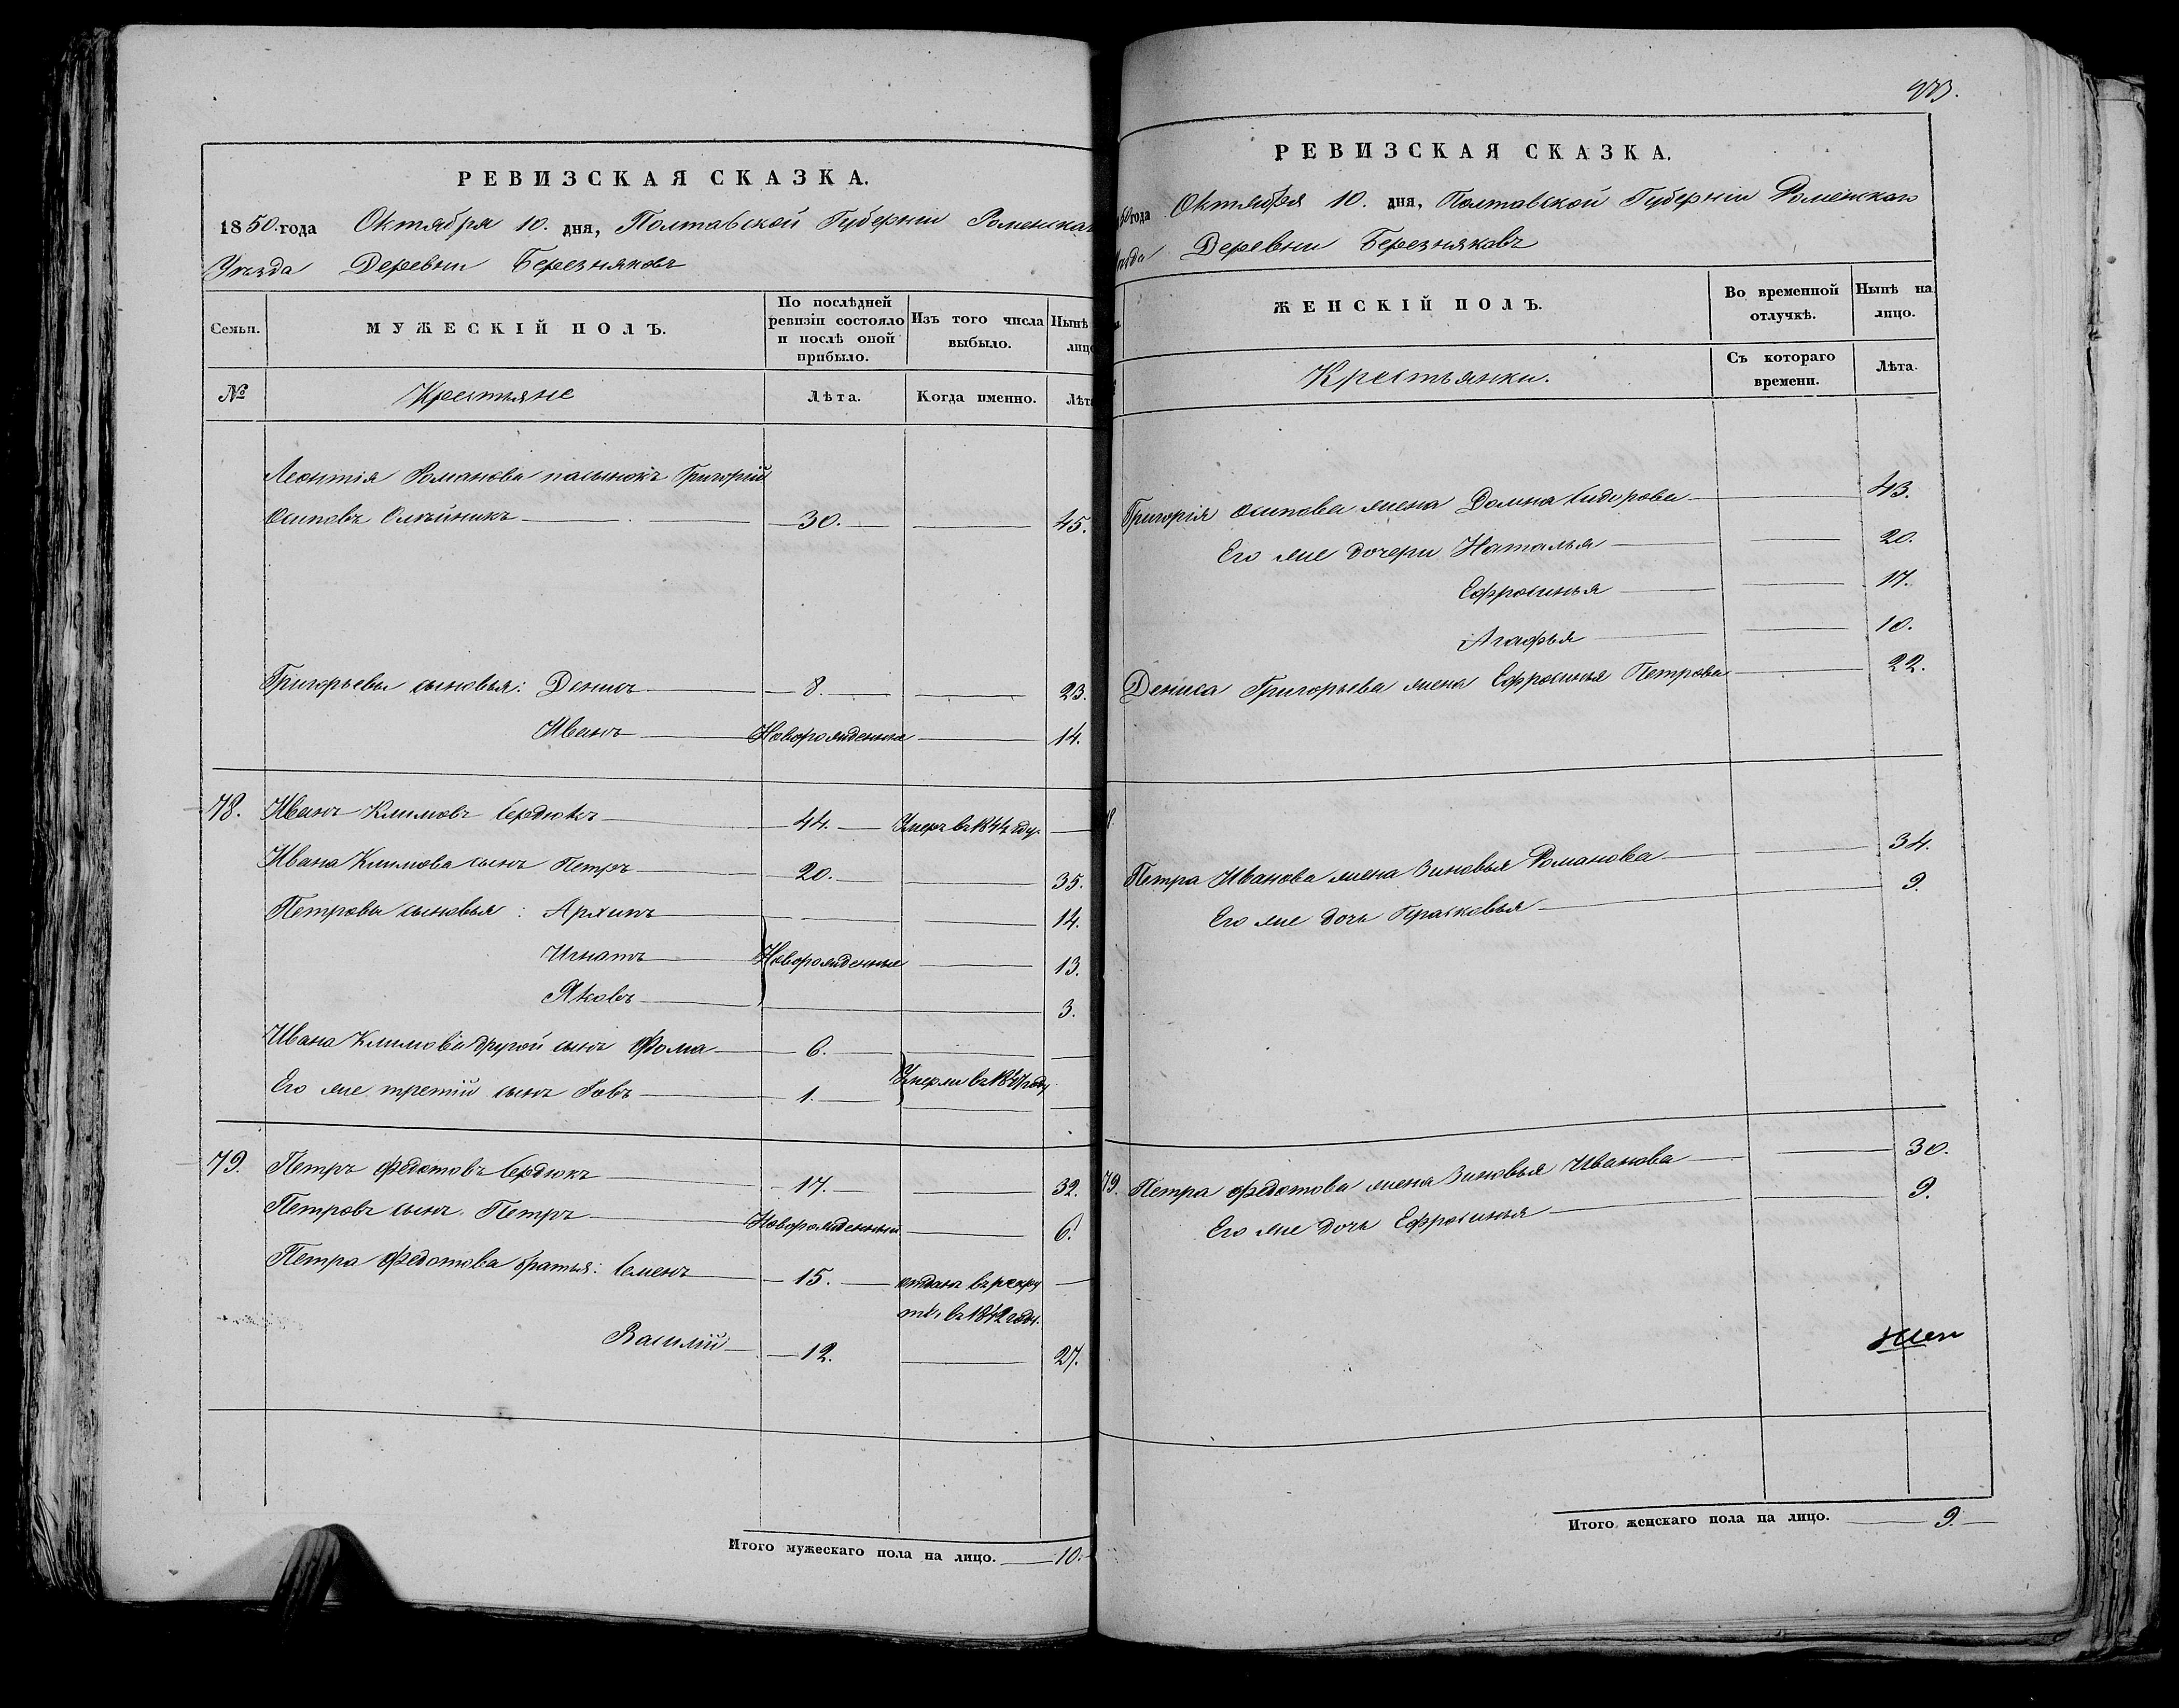 РЕВИЗСКАЯ СКАЗКА.
1850. года Октября 10. дня, Полтавской Губерніи Роменскаго
Уѣзда Деревни Березняковъ
Семьи. МУЖЕСКІЙ ПОЛЪ. По послѣдней ревизіи состояло и послѣ оной прибыло. Изъ того числа выбыло. Нынѣ лицо
№ Крестьяне Лѣта. Когда именно. Лѣта
Леонтія Романова пасынокъ Григорій
Осиповъ Олѣйникъ 30. 45.
Григорьевы сыновья: Денисъ 8. 23.
Иванъ Новорожденные 14.
78. Иванъ Климовъ Сердюкъ 44. Умеръ въ 1844 году.
Ивана Климова сынъ Петръ 20. 35.
Петровы сыновья: Архипъ 14.
Игнатъ Новорожденные 13.
Яковъ 3.
Ивана Климова другой сынъ Фома 6.
Его же третій сынъ Іовъ 1. Умерли въ году
79. Петръ Федотовъ Сердюкъ 17. 32.
Петровъ сынъ Петръ Новорожденный 6.
Петра Федотова братья: Семенъ 15. отданъ въ рекру
ты въ 1842 году.
Василій 12. 27.
Итого мужескаго пола на лицо. 10.
РЕВИЗСКАЯ СКАЗКА.
50 года Октября 10. дня, Полтавской Губерніи Роменскаго
Уѣзда Деревни Березняковъ
ЖЕНСКІЙ ПОЛЪ. Во временной отлучкѣ. Нынѣ на лицо.
Крестьянки. Съ котораго времени. Лѣта.
Григорія Осипова жена Домна Сидорова 43.
Его же дочери Наталья 20.
Ефросинья 17.
Агафья 10.
Дениса Григорьева жена Ефросинья Петрова 22.
8.
Петра Иванова жена Зиновья Романова 34.
Его же дочь Прасковья 9.
79. Петра Федотова жена Зиновья Иванова 30.
Его же дочь Ефросинья 9.
Итого женскаго пола на лицо. 9.